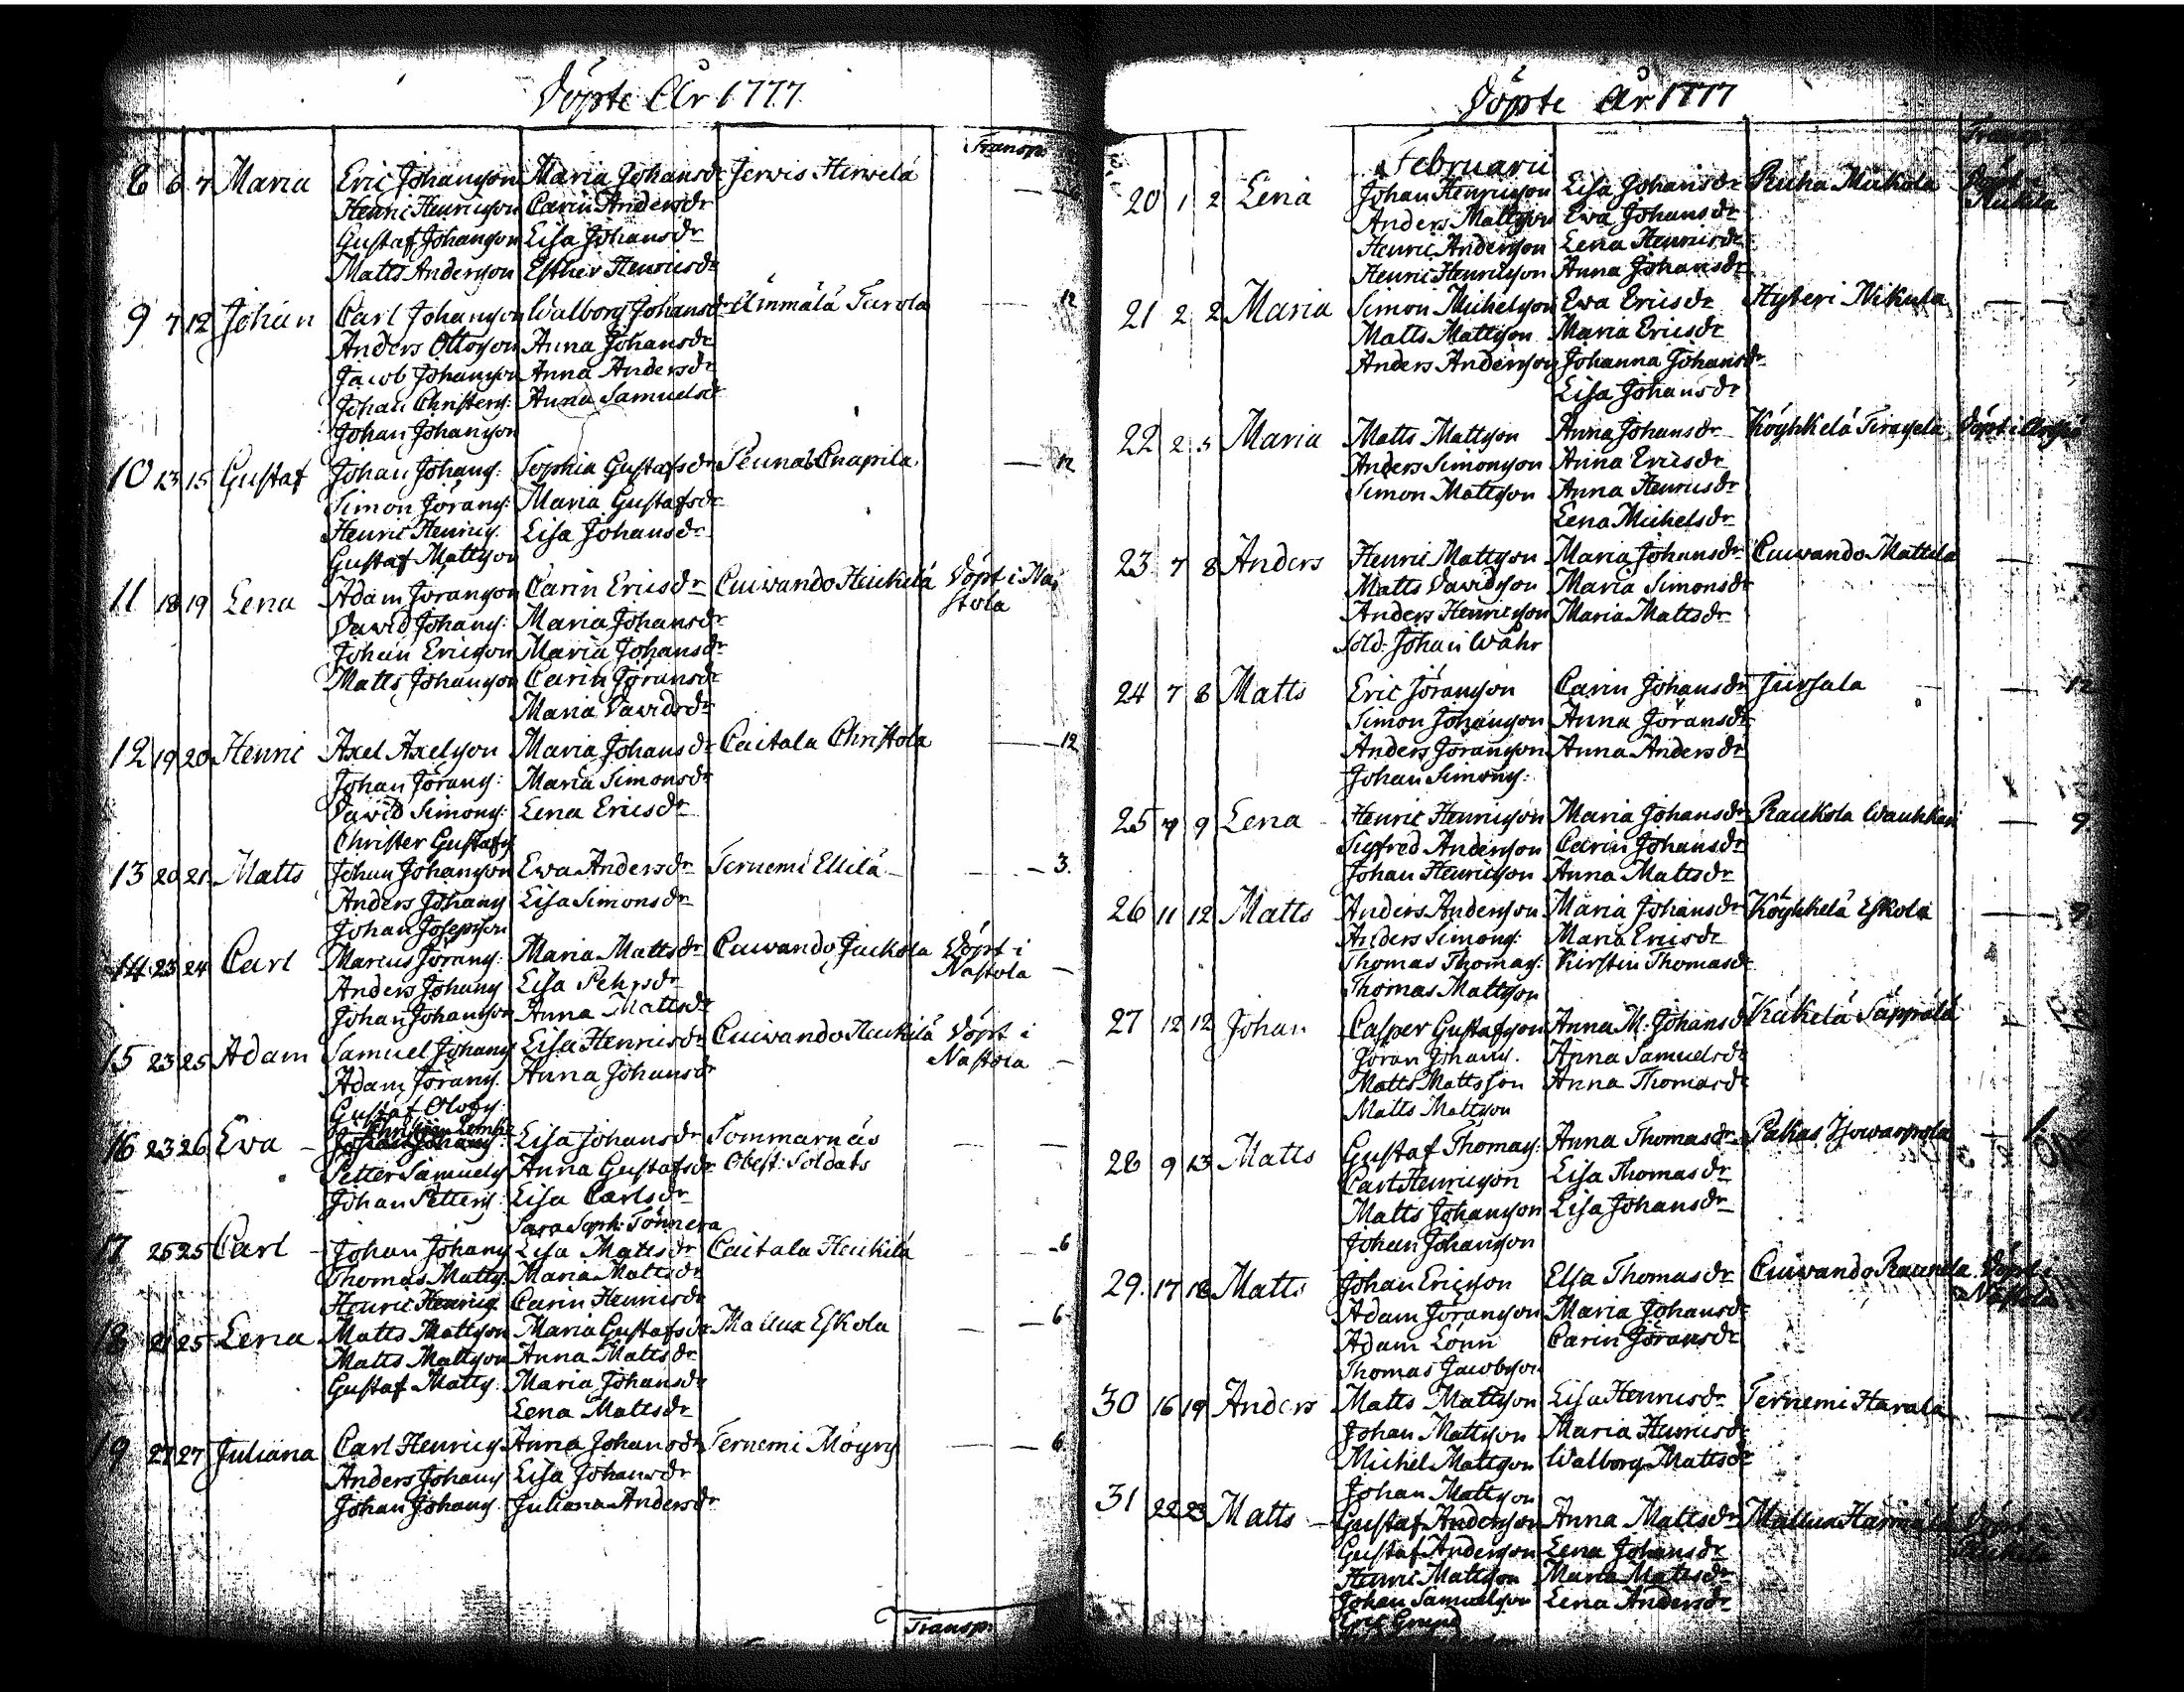 Döpte År 1777
Transp:
8 6 7 Maria Eric Johansson Maria Johansdr Jerwis Hirwelä
Henric Henricsson Carin Andersdr
Gustaf Johansson Lisa Johansdr
Matts Andersson Esther Henricsdr
9 7 12 Johan Carl Johansson Walborg Johansdr Immälä Turola — 12
Anders Ottosson Anna Johansdr
Jacob Johansson Anna Andersdr
Johan Christers: Anna Samuelsdr
Johan Johansson
10 13 15 Gustaf Johan Johans: Sophia Gustafsdr Cnapila — 12
Simon Jörans: Maria Gustafsdr
Henric Henrics: Lisa Johansdr
Gustaf Mattsson
11 18 19 Lena Adam Jöransson Carin Ericsdr Cuiwando Heickilä Döpt i Na-
David Johans: Maria Johansdr stola
Johan Ericsson Maria Johansdr
Matts Johansson Carin Jöransdr
Maria Davidsdr
12 19 20 Henric Axel Axelsson Maria Johansdr Caitala Christola — 12
Johan Jörans: Maria Simonsdr
David Simons: Lena Ericsdr
Christer Gustafs
13 20 21 Matts Johan Johansson Ewa Andersdr Ternemi Ellilä — 3.
Anders Johans Lisa Simonsdr
Johan Josephson
14 23 24 Carl Marcus Jörans: Maria Mattsdr Cuiwando Juckola Döpt i
Anders Johans Lisa Pehrsdr Nastola —
Johan Johansson Anna Mattsdr
15 23 25 Adam Samuel Johans Lisa Henricsdr Cuiwando Heickilä Döpt i
Adam Jörans. Anna Johansdr Nastola —
Gustaf Olofs:
16 23 26 Ewa — Johan Johans: Lisa Johansdr Sommarnäs — —
Petter Samuels Anna Gustafsdr Obest: Soldats
Johan Petters: Lisa Carlsdr
Sara Soph: Tönnera
17 25 25 Carl — Johan Johans Lisa Mattsdr Caitala Heickilä — 6
Thomas Matts: Maria Mattsdr
Henric Henrics Carin Henricsdr
18 21 25 Lena Matts Mattsson Maria Gustafsdr Mallux Eskola — 6
Matts Mattsson Anna Mattsdr
Gustaf Matts: Maria Johansdr
Lena Mattsdr
19 27 27 Juliana Carl Henrics Anna Johansdr Ternemi Möyry — 6
Anders Johans Lisa Johansdr
Johan Johans. Juliana Andersdr
Transp:
Döpte År 1777
Februarii
20 1 2 Lena Johan Henricsson Lisa Johansdr Ruha Mickola Döpt i
Anders Mattsson Ewa Johansdr
Henric Andersson Lena Henricsdr
Henric Henricsson Anna Johansdr
21 2 2 Maria Simon Michelsson Ewa Ericsdr Hyteri Nikula — —
Matts Mattsson Maria Ericsdr
Anders Andersson Johanna Johansdr
Lisa Johansdr
22 2 5 Maria Matts Mattsson Anna Johansdr Köyhkelä Döpt i
Anders Simonsson Anna Ericsdr
Simon Mattsson Anna Henricsdr
Lena Michelsdr
23. 7 8 Anders Henric Mattsson Maria Johansdr Cuiwando Mattila —
Matts Davidsson Maria Simonsdr
Anders Henricsson Maria Mattsdr
Sold: Johan Wåhr
24 7 8 Matts Eric Jöransson Carin Johansdr Jursala — 12
Simon Johansson Anna Jöransdr
Anders Jöransson Anna Andersdr
Johan Simons:
25 7 9 Lena — Henric Henricsson Maria Johansdr Rackola Wauhkari — 9
Sigfred Andersson Carin Johansdr
Johan Henricsson Anna Mattsdr
26 11 12 Matts Anders Andersson Maria Johansdr Köyhkelä Eskola — 9
Anders Simons: Maria Ericsdr
Thomas Thomas: Kirstin Thomasdr
Thomas Mattsson
27 12 12 Johan Casper Gustafsson Anna M: Johansd Käkelä Säppälä —
Jöran Johans. Anna Samuelsdr
Matts Mattsson Anna Thomasdr
Matts Mattsson
28 9 13 Matts Gustaf Thomas: Anna Thomasdr Pakas
Carl Henricsson Lisa Thomasdr
Matts Johansson Lisa Johansdr
Johan Johansson
29. 17 18 Matts Johan Ericsson Elsa Thomasdr Cuiwando Döpt i
Adam Jöransson Maria Johansdr Nastola
Adam Lönn Carin Jöransdr
Thomas Jacobsson
30 16 19 Anders Matts Mattsson Lisa Henricsdr Ternemi Harala —
Johan Mattsson Maria Henricsdr
Michel Mattsson Walborg Mattsdr
Johan Mattsson
31 22 23 Matts — Gustaf Andersson Anna Mattsdr Mallux Döpt
Gustaf Andersson Lena Johansdr
Henric Mattsson Maria Mattsdr
Johan Samuelsson Lena Andersdr